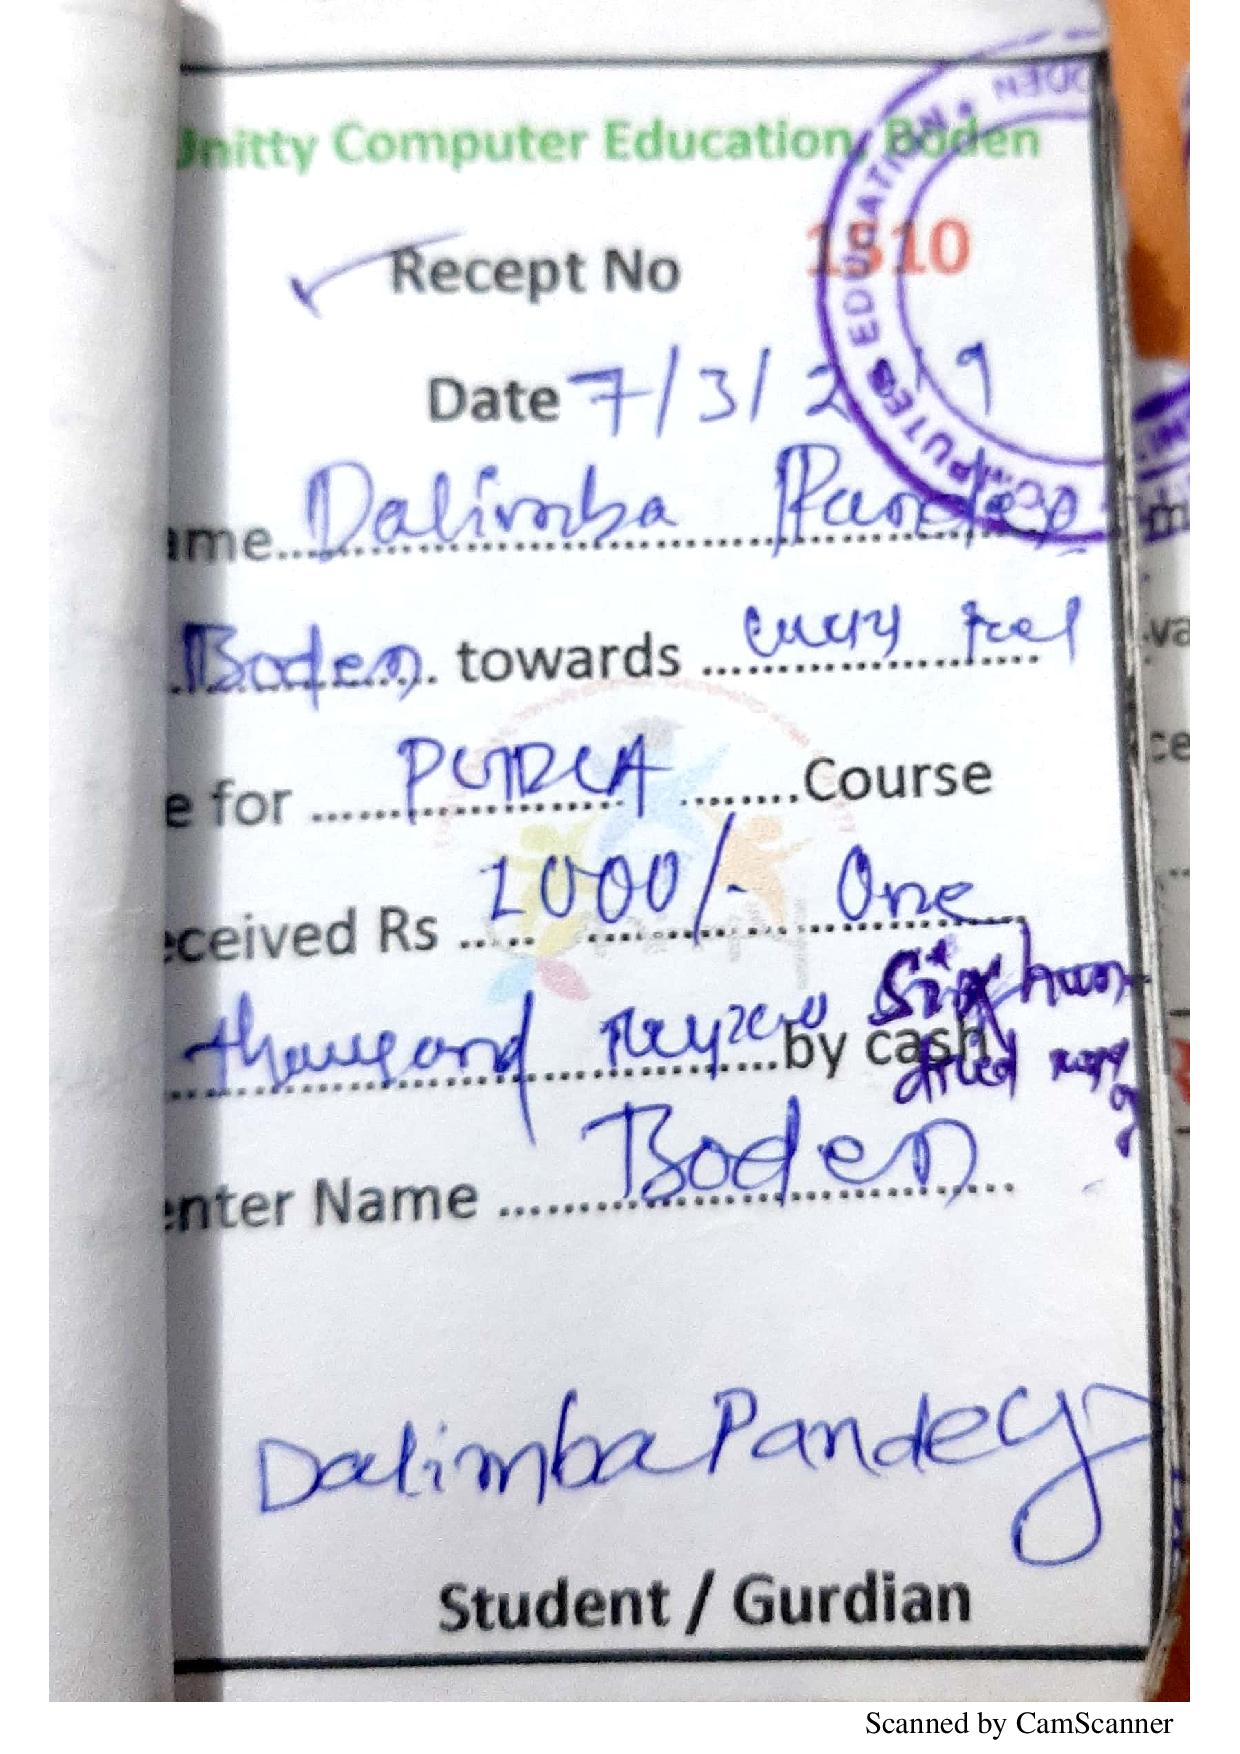 Unitty Computer Education, Boden
Recept No 1310
Date 7/3/2019
ame Dalimba Pandey
Boden towards
e for PGDCA Course
eceived Rs 1000/- One
thousand by cash
Six hun
dred
enter Name Boden
Dalimba Pandey
Student / Gurdian
COMPUTER EDUCATION * BODEN
Scanned by CamScanner